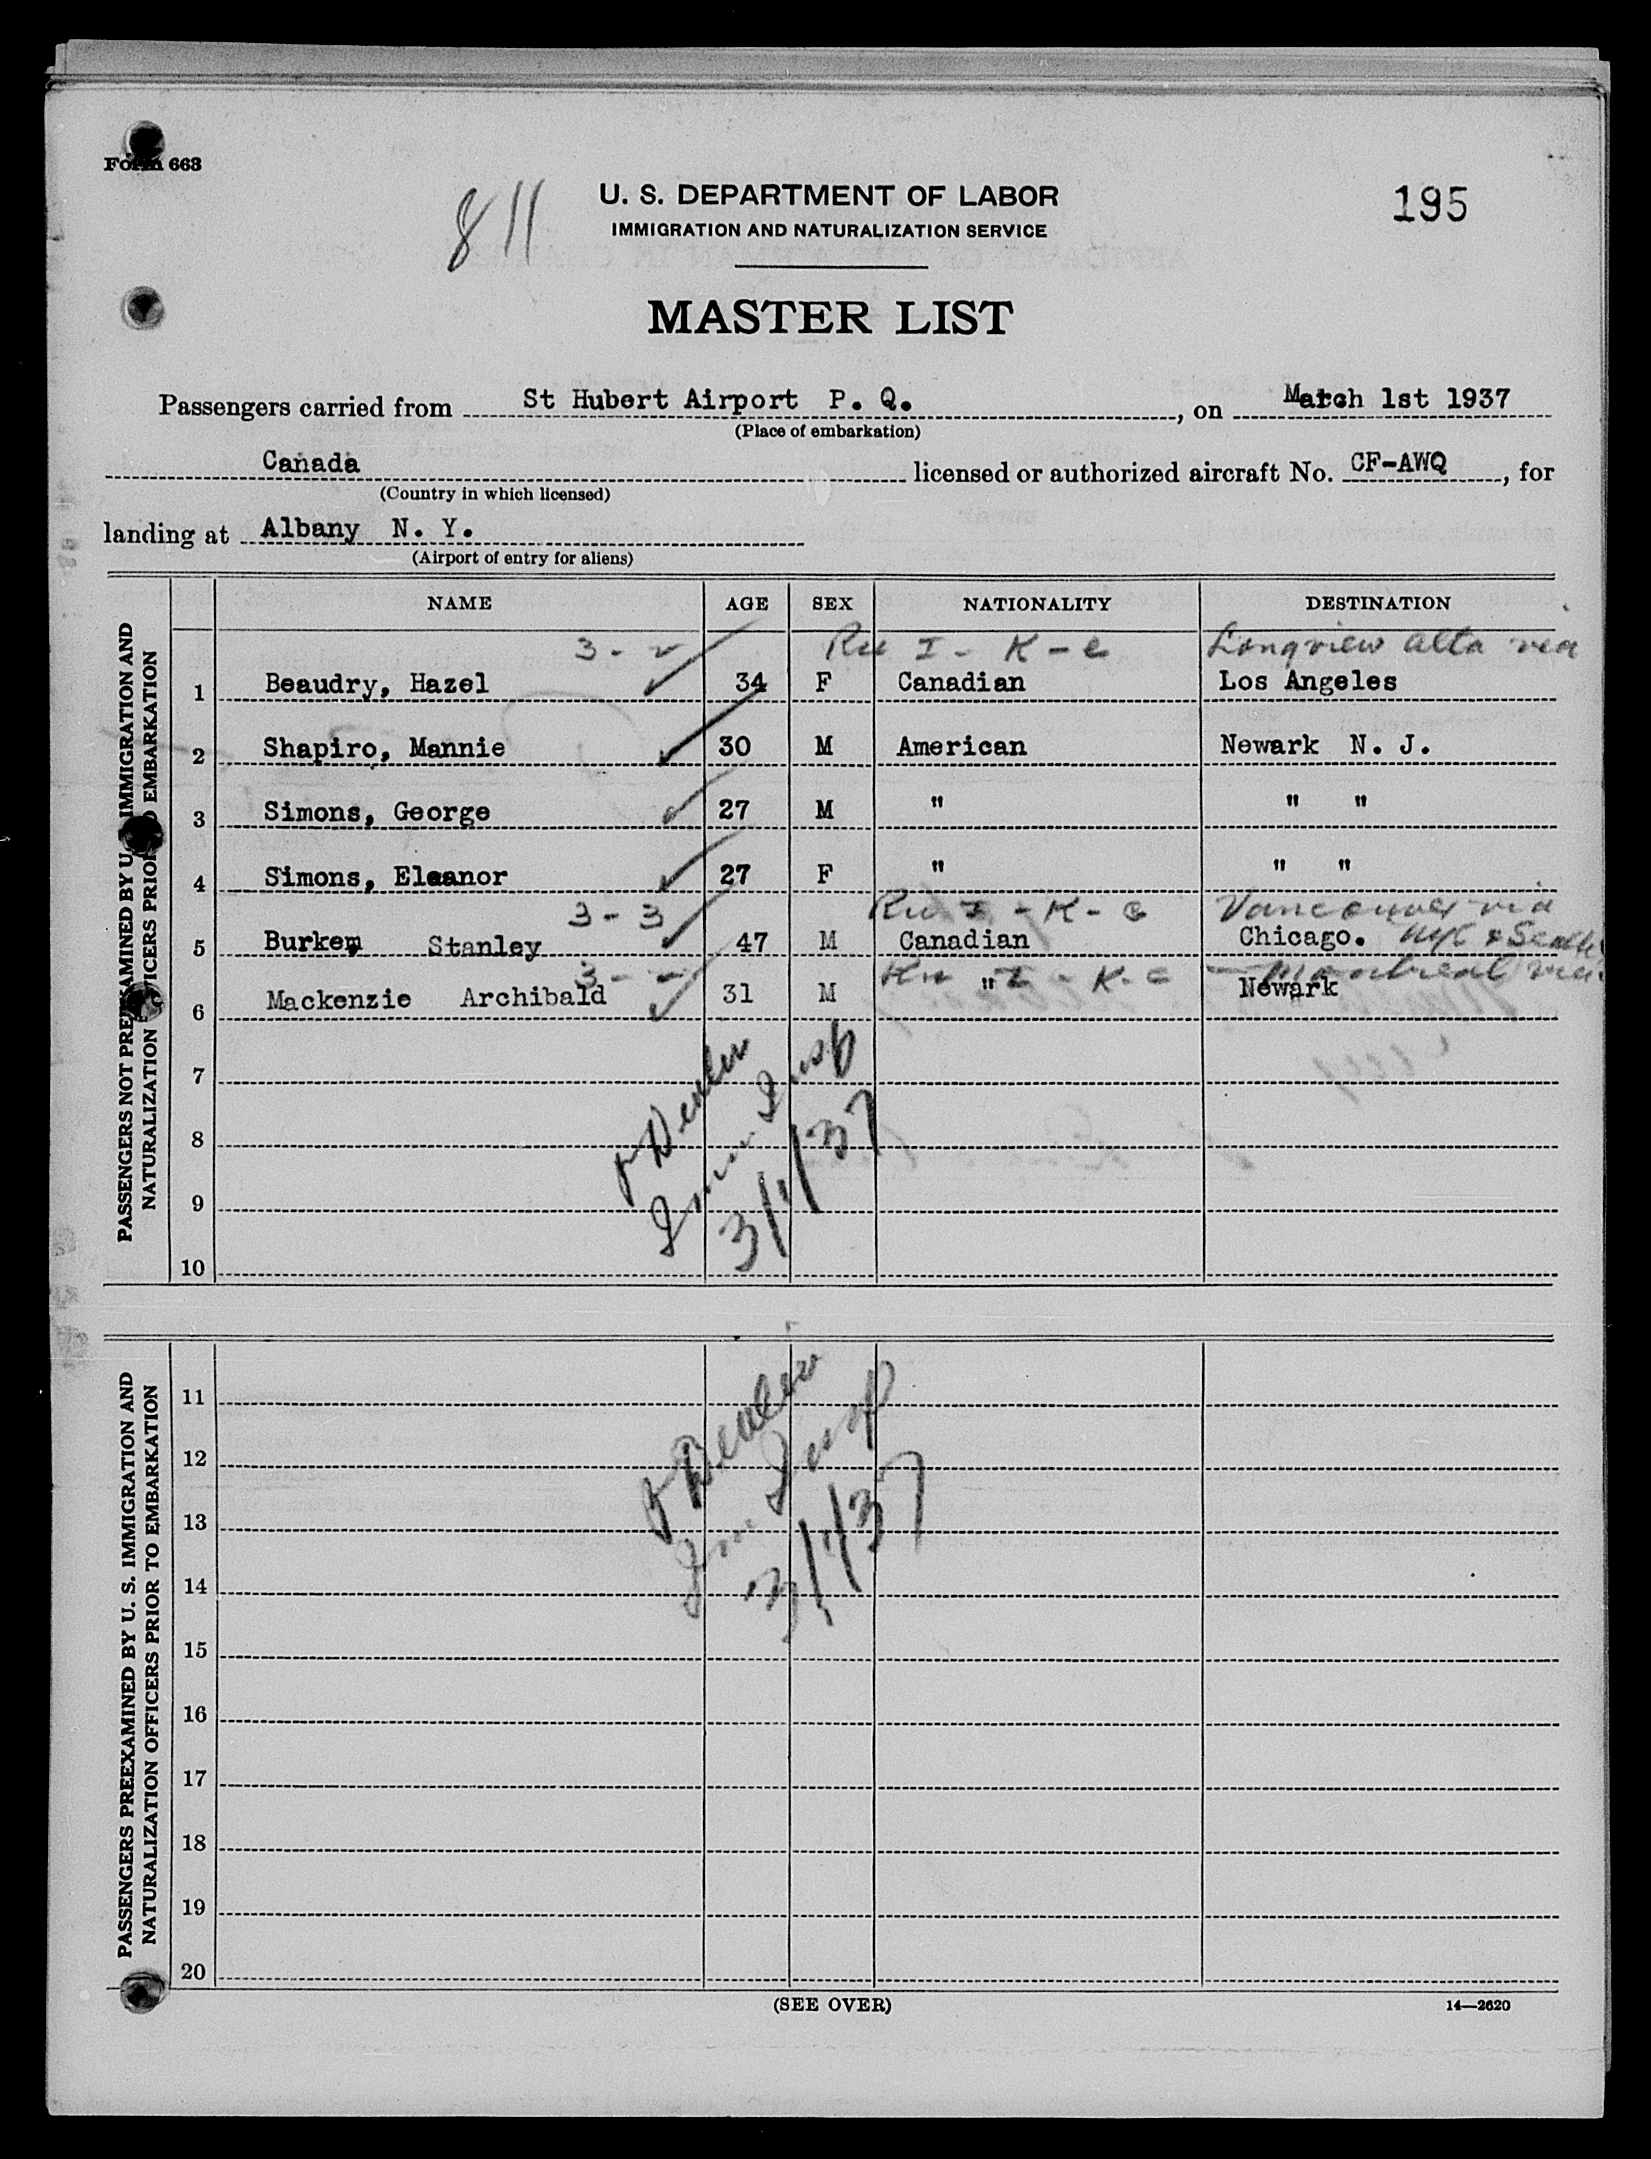 Form 663
811
U. S. DEPARTMENT OF LABOR
195
IMMIGRATION AND NATURALIZATION SERVICE
MASTER LIST
Passengers carried from St Hubert Airport P. Q., on March 1st 1937
(Place of embarkation)
Canada licensed or authorized aircraft No. CF-AWQ, for
(Country in which licensed)
landing at Albany N. Y.
(Airport of entry for aliens)
NAME AGE SEX NATIONALITY DESTINATION
PASSENGERS NOT PREEXAMINED BY U. S. IMMIGRATION AND
NATURALIZATION OFFICERS PRIOR TO EMBARKATION
3 - I - K - c Longview Alta via
1 Beaudry, Hazel 34 F Canadian Los Angeles
2 Shapiro, Mannie 30 M American Newark N. J.
3 Simons, George 27 M " " "
4 Simons, Eleanor 27 F " " "
3 - 3 I - K - c Vancouver via
5 Burkem Stanley 47 M Canadian Chicago. NYC & Seattle
3 - I - K - c Montreal via
6 Mackenzie Archibald 31 M " Newark
7
8
9
10
Imm Insp
3/1/37
PASSENGERS PREEXAMINED BY U. S. IMMIGRATION AND
NATURALIZATION OFFICERS PRIOR TO EMBARKATION
11
12
13
14
15
16
17
18
19
20
Imm Insp
3/1/37
(SEE OVER)
14—2620